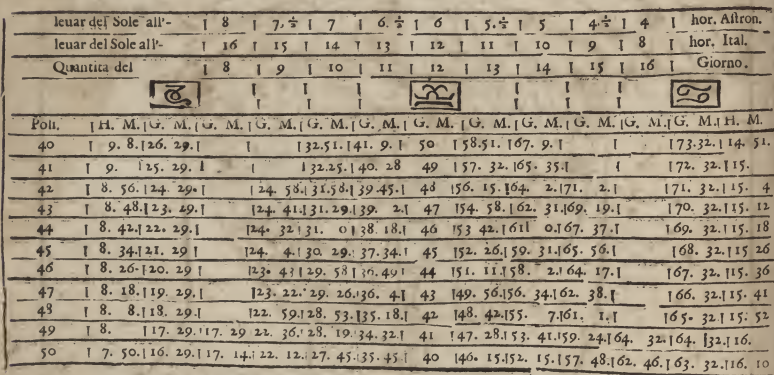 leuar del Sole all'- | 8 | 7.½ | 7 | 6.½ | 6 | 5.½ | 5 | 4½ | 4 | hor. Astron.
leuar del Sole all'- | 16 | 15 | 14 | 13 | 12 | 11 | 10 | 9 | 8 | hor. Ital.
Quantita del | 8 | 9 | 10 | 11 | 12 | 13 | 14 | 15 | 16 | Giorno.
♑ ♈ ♋
Poli. | H. M. | G. M. | G. M. | G. M. | G. M. | G. M. | G. M. | G. M. | G. M. | G. M. | G. M. | H. M.
40 | 9. 8. | 26. 29. | | | 32.51. | 41. 9. | 50 | 58.51. | 67. 9. | | | 73.32. | 14. 51.
41 | 9. | 25. 29. | | | 32.25. | 40. 28 | 49 | 57. 32. | 65. 35. | | | 72. 32. | 15.
42 | 8. 56. | 24. 29. | | 24. 58. | 31.58. | 39.45. | 48 | 56. 15. | 64. 2. | 71. 2. | | 71. 32. | 15. 4
43 | 8. 48. | 23. 29. | | 24. 41. | 31. 29. | 39. 2. | 47 | 54. 58. | 62. 31. | 69. 19. | | 70. 32. | 15. 12
44 | 8. 42. | 22. 29. | | 24. 32 | 31. 0 | 38. 18. | 46 | 53 42. | 61 | 0. | 67. 37. | | 69. 32. | 15. 18
45 | 8. 34. | 21. 29 | | 24. 4. | 30. 29. | 37.34. | 45 | 52. 26. | 59. 31. | 65. 56. | | 68. 32. | 15 26
46 | 8. 26. | 20. 29 | | 23. 43 | 29. 58 | 36. 49 | 44 | 51. 11. | 58. 2. | 64. 17. | | 67. 32. | 15. 36
47 | 8. 18. | 19. 29. | | 23. 22. | 29. 26. | 36. 4 | 43 | 49. 56. | 56. 34. | 62. 38. | | 66. 32. | 15. 41
48 | 8. 8. | 18. 29. | | 22. 59. | 28. 53. | 35. 18. | 42 | 48. 42. | 55. 7. | 61. 1. | | 65. 32. | 15. 52
49 | 8. | 17. 29. | 17. 29 | 22. 36. | 28. 19. | 34. 32. | 41 | 47. 28. | 53. 41. | 59. 24. | 64. 32. | 64. | 32. | 16.
50 | 7. 50. | 16. 29. | 17. 14. | 22. 12. | 27. 45. | 35. 45. | 40 | 46. 15. | 52. 15. | 57. 48. | 62. 46. | 63. 32. | 16. 10